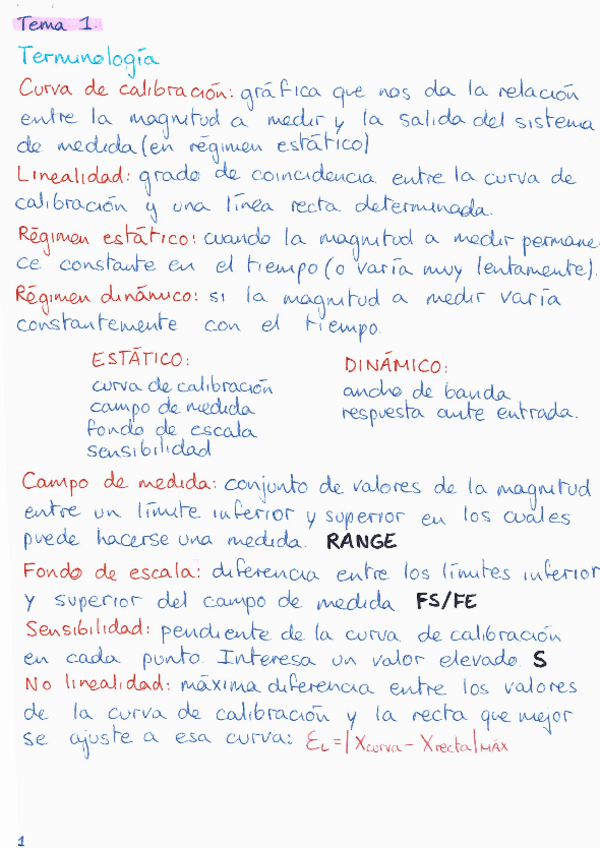 Tema 1.
Terminología
Curva de calibración: gráfica que nos da la relación
entre la magnitud a medir y la salida del sistema
de medida (en régimen estático)
Linealidad: grado de coincidencia entre la curva de
calibración y una línea recta determinada.
Régimen estático: cuando la magnitud a medir permane-
ce constante en el tiempo (o varía muy lentamente).
Régimen dinámico: si la magnitud a medir varía
constantemente con el tiempo.
ESTÁTICO:
curva de calibración
campo de medida
fondo de escala
sensibilidad
DINÁMICO:
ancho de banda
respuesta ante entrada.
Campo de medida: conjunto de valores de la magnitud
entre un límite inferior y superior en los cuales
puede hacerse una medida. RANGE
Fondo de escala: diferencia entre los límites inferior
y superior del campo de medida FS/FE
Sensibilidad: pendiente de la curva de calibración
en cada punto. Interesa un valor elevado. S
No linealidad: máxima diferencia entre los valores
de la curva de calibración y la recta que mejor
se ajuste a esa curva: εL = |Xcurva - Xrecta|MÁX
1